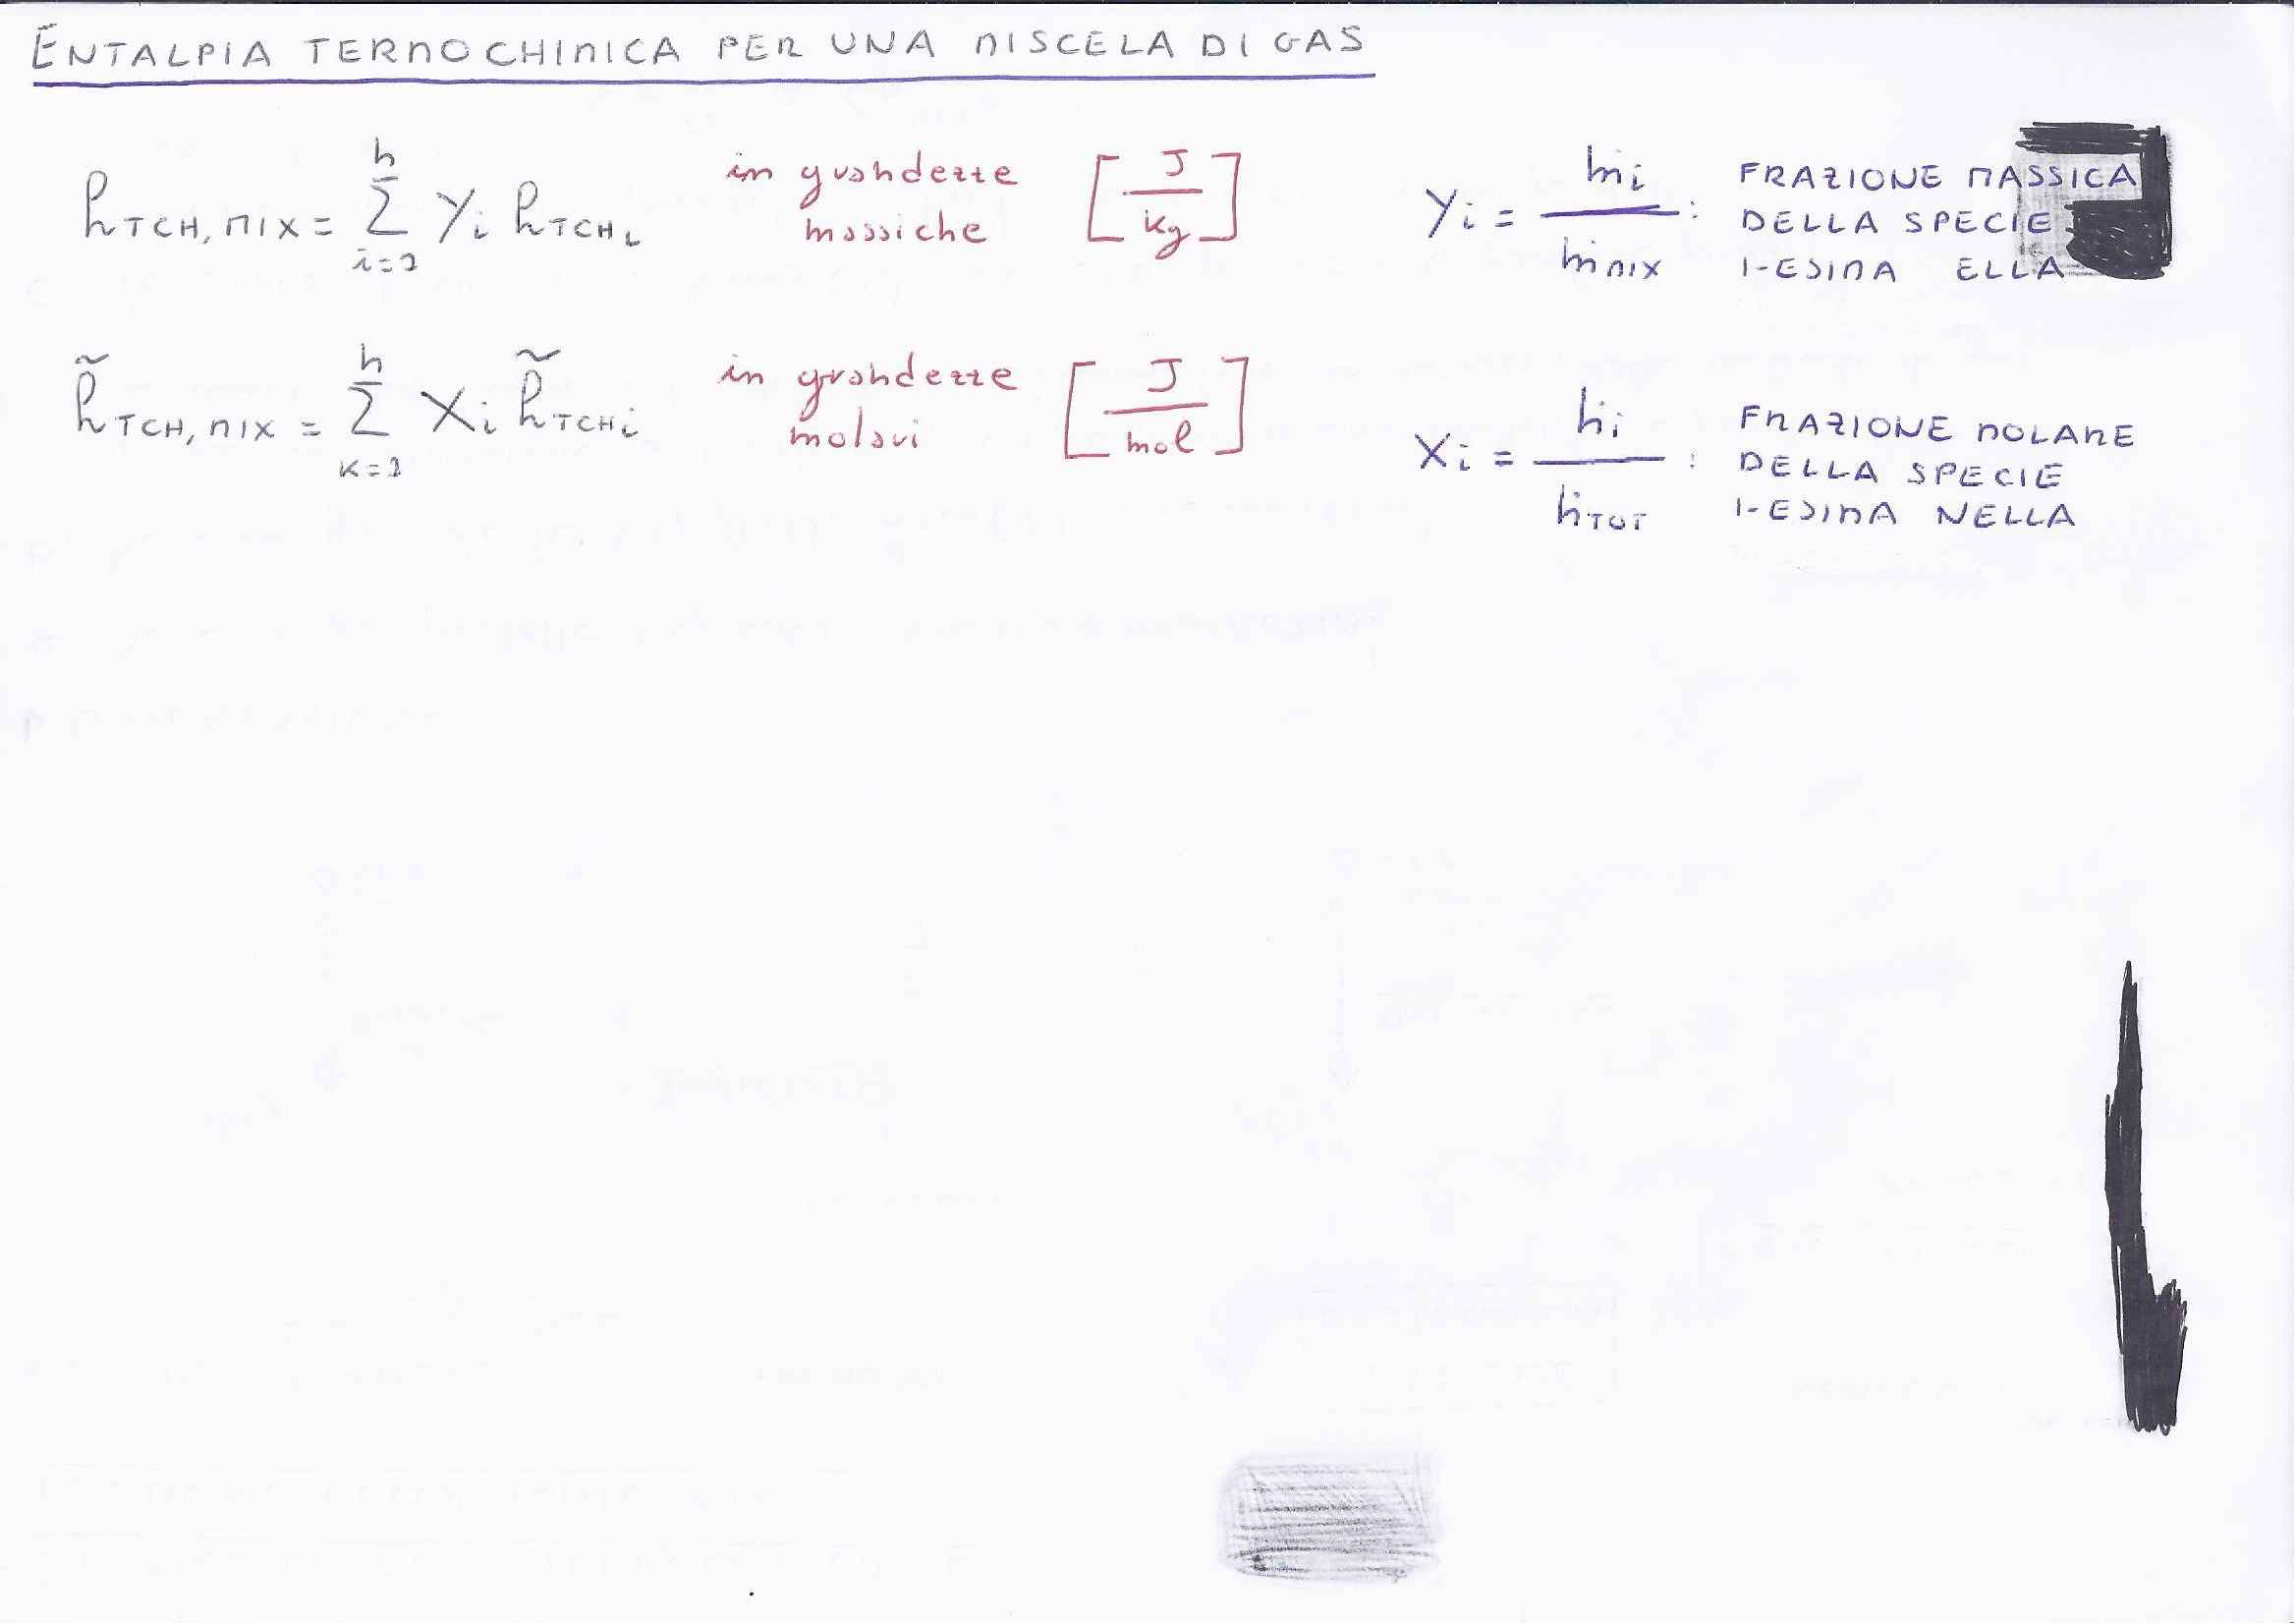 ENTALPIA TERMOCHIMICA PER UNA MISCELA DI GAS
h_TCH,MIX = Σ_{i=1}^{n} y_i h_TCH_i   in grandezze massiche   [J/kg]   y_i = ṁ_i / ṁ_MIX :
FRAZIONE MASSICA
DELLA SPECIE
I-ESIMA ELLA
h̃_TCH,MIX = Σ_{K=1}^{n} X_i h̃_TCH_i   in grandezze molari   [J/mol]   X_i = ṅ_i / ṅ_TOT :
FRAZIONE MOLARE
DELLA SPECIE
I-ESIMA NELLA